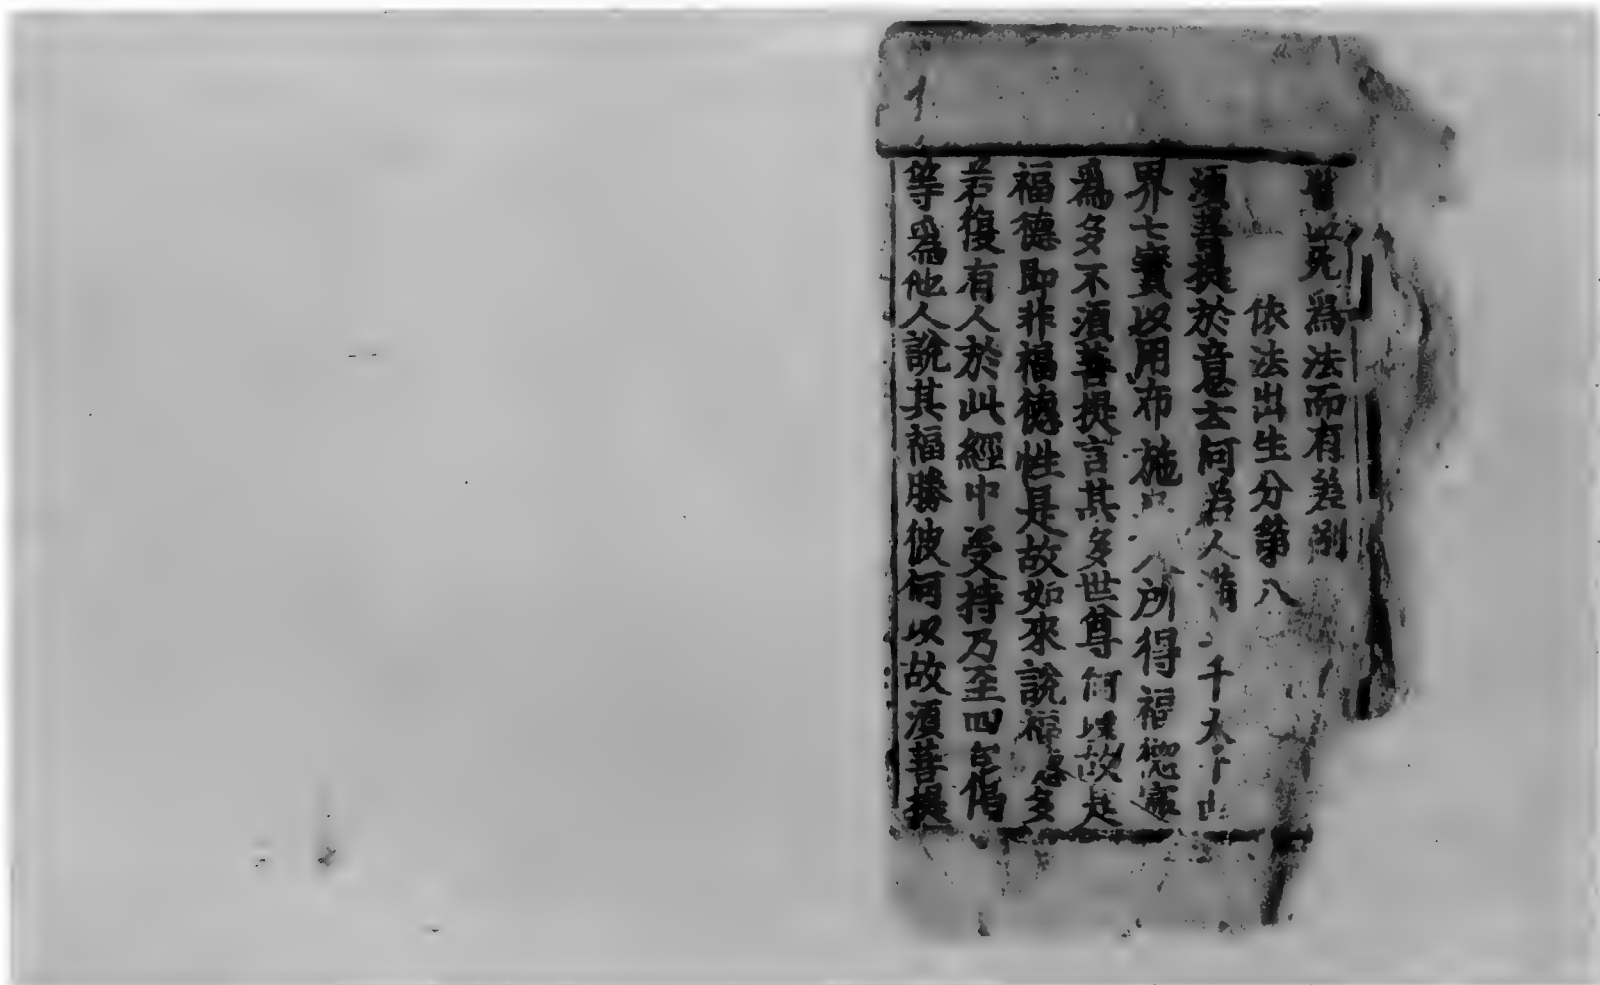 皆以无為法而有差别
依法出生分第八
須菩提於意云何若人滿千大千世
界七寳以用布施人所得福德寧
為多不須菩提言甚多世尊何以故是
福德即非福德性是故如來說福德多
若復有人於此經中受持乃至四句偈
等為他人說其福勝彼何以故須菩提